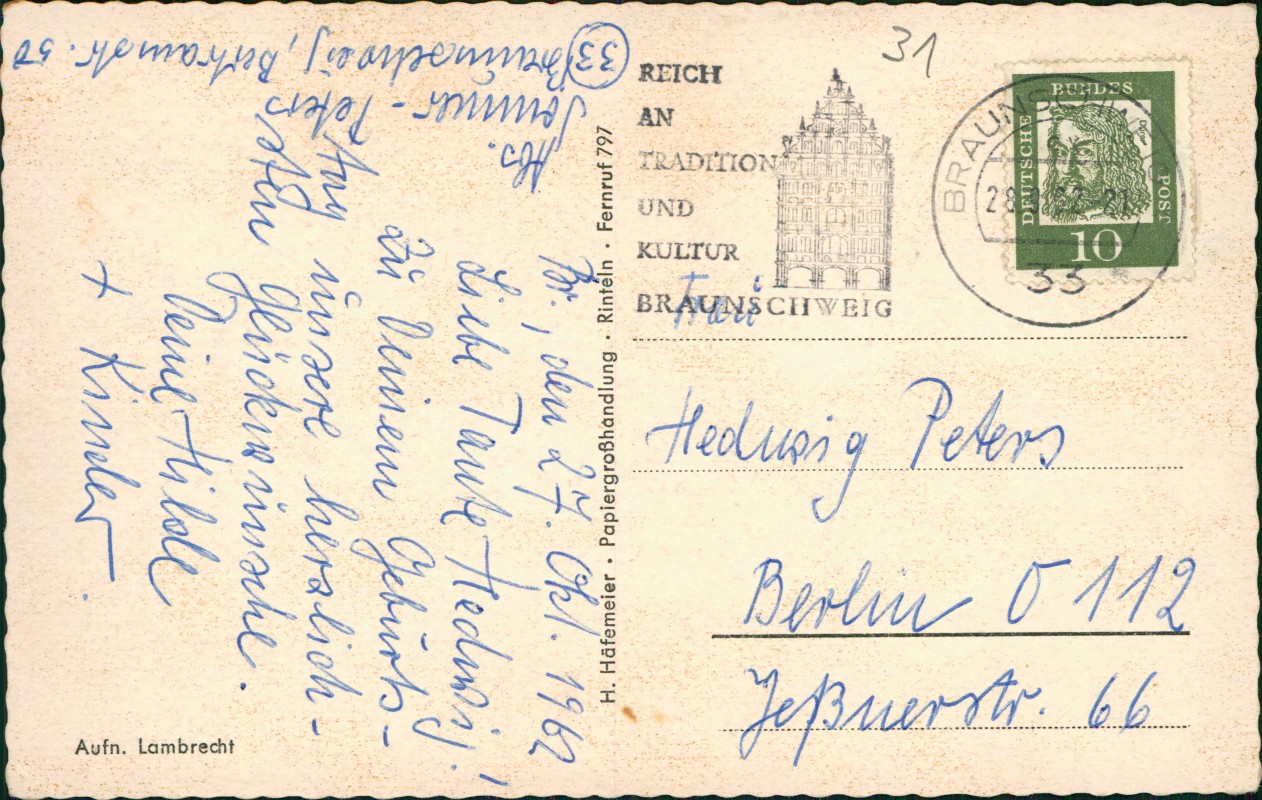 31
REICH
AN
TRADITION
UND
KULTUR
BRAUNSCHWEIG
BRAUNSCHWEIG
33
BUNDES
DEUTSCHE
POST
Dürer
10
Frau
Hedwig Peters
Berlin O 112
Jeßnerstr. 66
Abs.
Sommer - Peters
33 Braunschweig, Bertramstr. 50
Br., den 27. Okt. 1962
Liebe Tante Hedwig!
Zu Deinem Geburts-
tag unsere herzlich-
sten Glückwünsche.
Deine Hilde
+ Kinder.
H. Häfemeier · Papiergroßhandlung · Rinteln · Fernruf 797
Aufn. Lambrecht